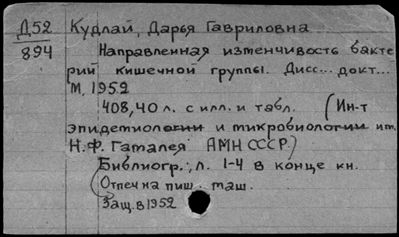 Д52 Кудлай, Дарья Гавриловна
894 Направленная изменчивость бакте
рий кишечной группы. Дисс... докт...
М, 1952
408,40 л. с илл. и табл. (Ин-т
эпидемиологии и микробиологии им.
Н.Ф. Гамалея АМН СССР.)
Библиогр.: л. 1-4 в конце кн.
Отпеч на пиш. маш.
Защ. в 1952